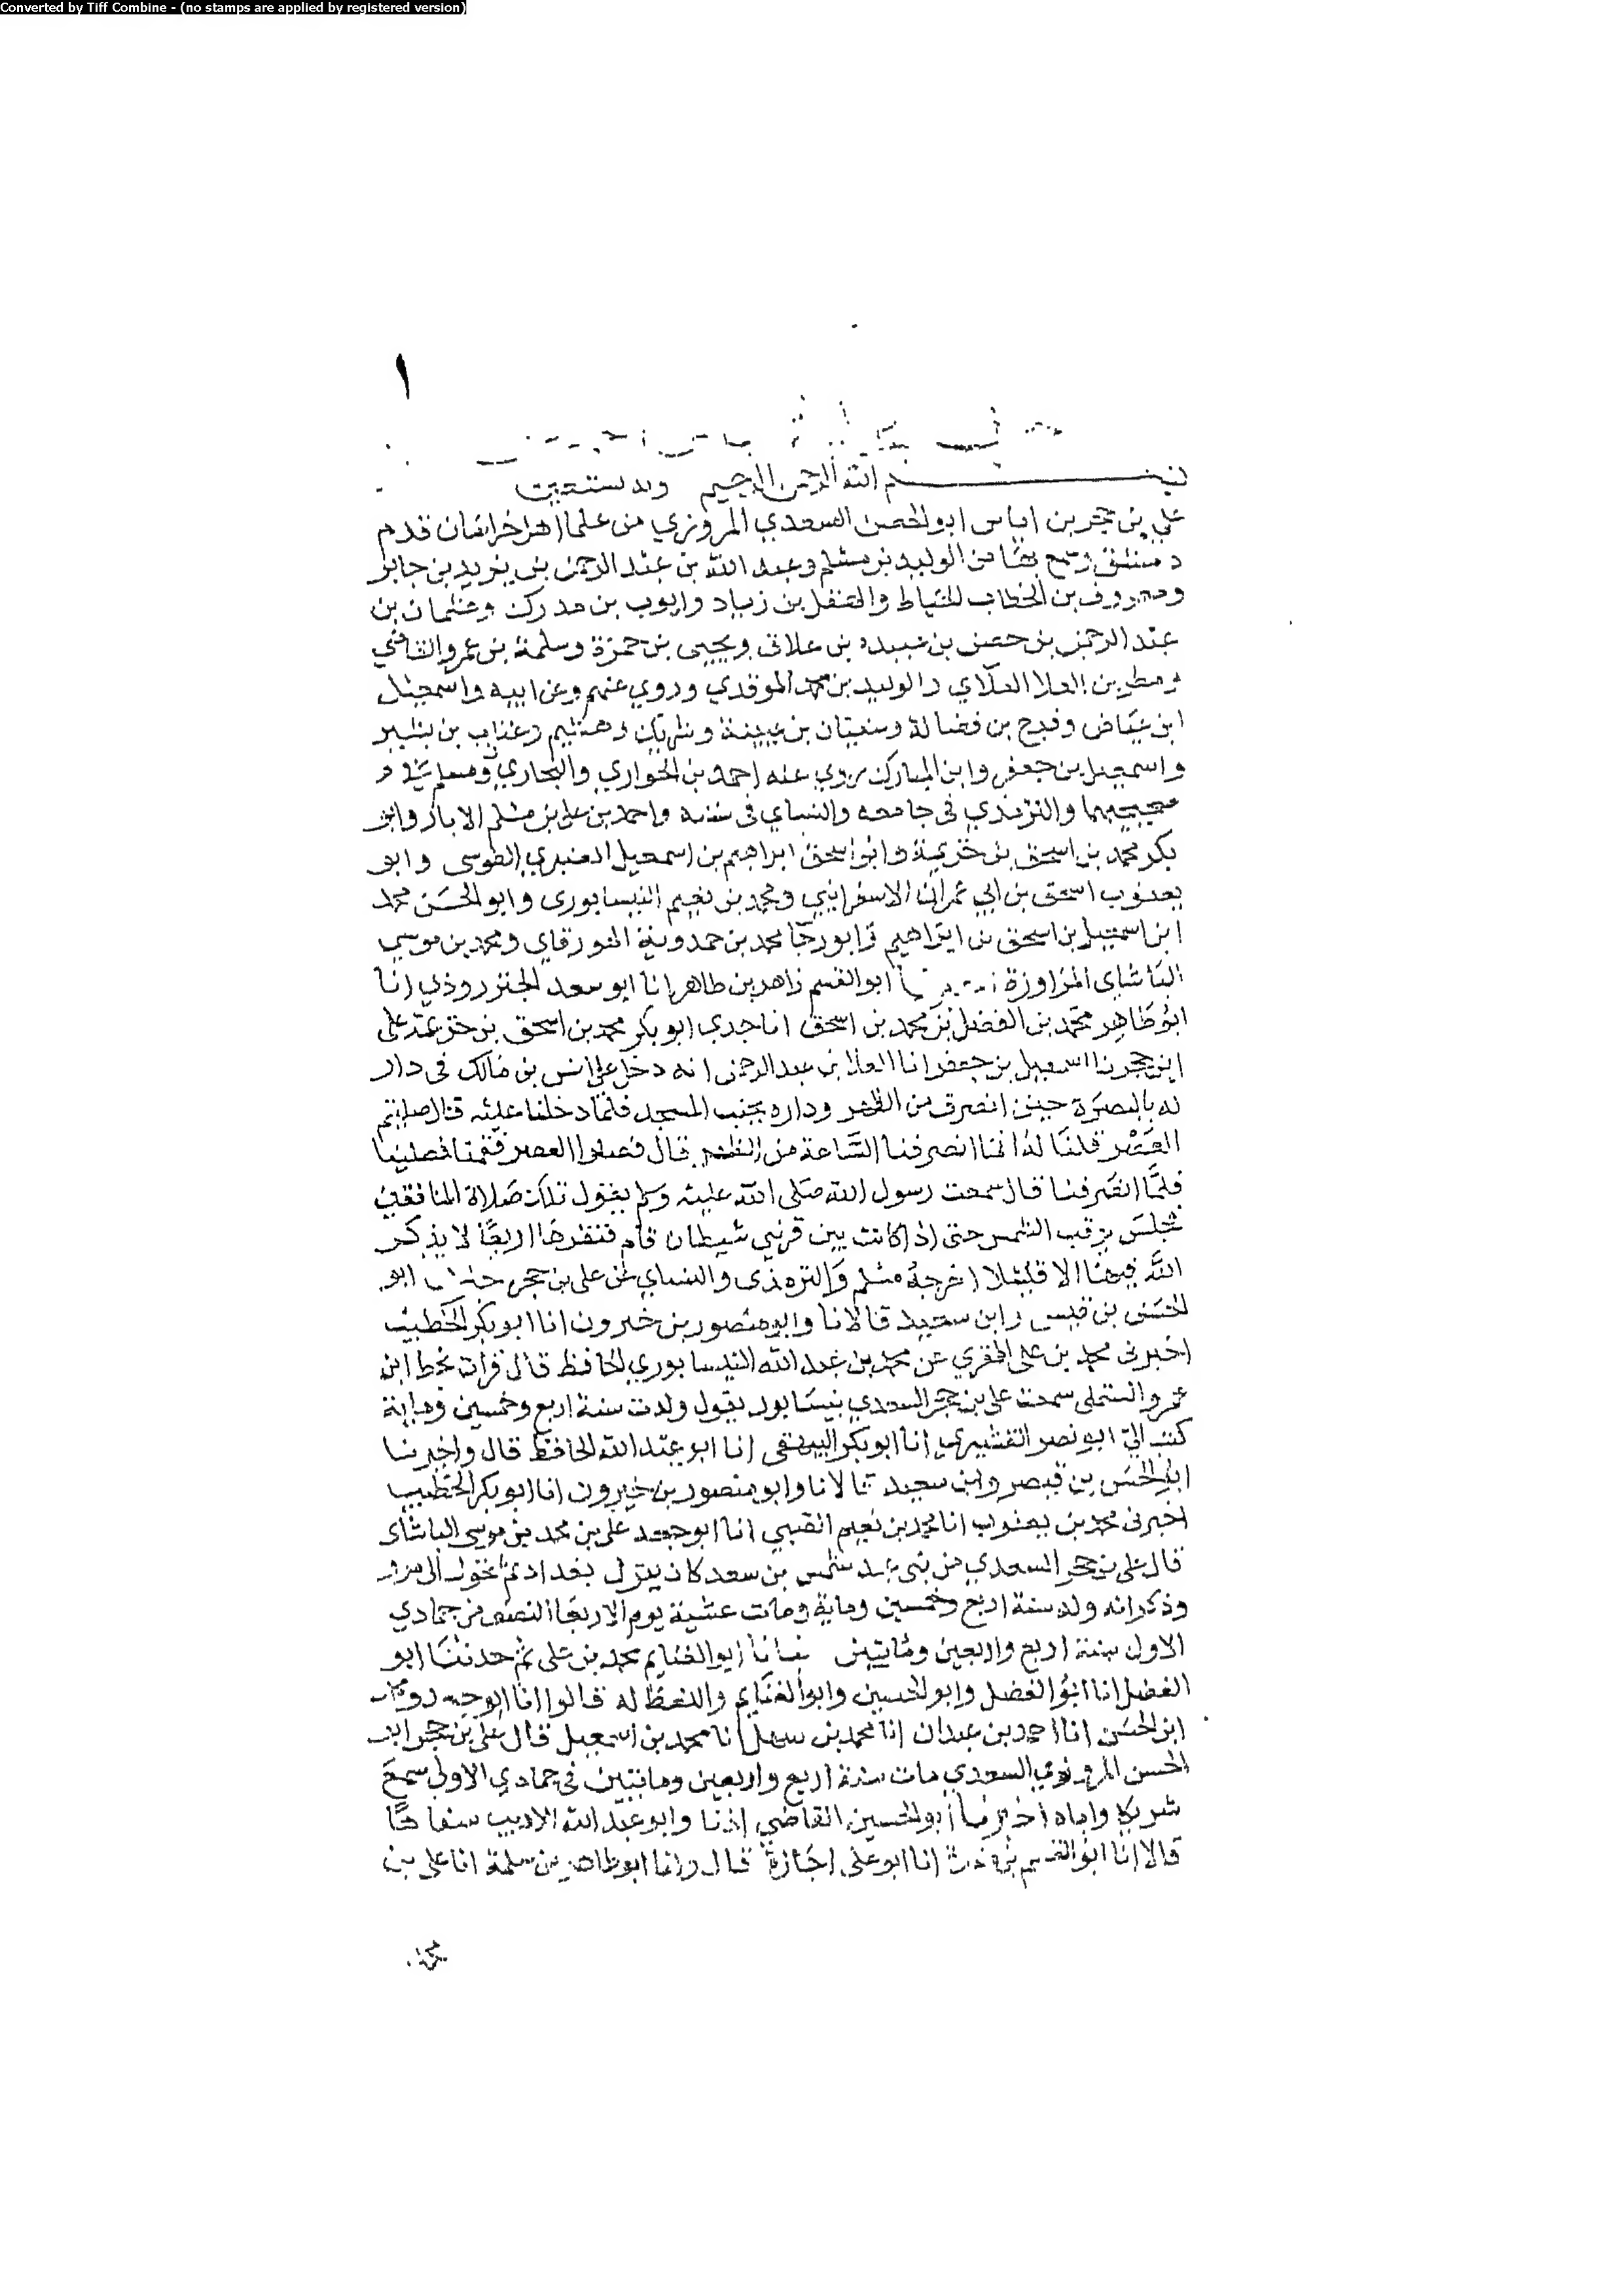 Converted by Tiff Combine - (no stamps are applied by registered version)
١
بسم الله الرحمن الرحيم وبه نستعين
علي بن حجر بن اياس ابو الحسن السعدي المروزي من علما اهل خراسان قدم
دمشق وسمع بها من الوليد بن مسلم وعبد الله بن عبد الرحمن بن يزيد بن جابر
ومعروف بن الخطاب الخياط والهقل بن زياد وايوب بن مدرك وعثمان بن
عبد الرحمن بن حصن بن عبيده بن علاق ويحيى بن حمزة وسلمة بن عمرو القاضي
ومطر بن العلا الفزاري والوليد بن محمد الموقري وروي عنهم وعن ابيه واسمعيل
ابن عياض وفرج بن فضالة وسفيان بن عيينة وشريك وهشيم وعتاب بن بشير
واسمعيل بن جعفر وابن المبارك روي عنه احمد بن الحواري والبخاري ومسلم في
صحيحيهما والترمذي في جامعه والنساي في سننه واحمد بن علي بن مسلم الابار وابو
بكر محمد بن اسحق بن خزيمة وابو اسحق ابراهيم بن اسمعيل العنبري الطوسى وابو
يعقوب اسحق بن ابي عمران الاسفرايني ومحمد بن نعيم النيسابورى وابو الحسن محمد
ابن اسمعيل بن اسحق بن ابراهيم وابو رجا محمد بن حمدوية الهورقاي ومحمد بن موسي
الباشاى المراوزة ابو القسم زاهر بن طاهر انا ابو سعد الجنزروذي انا
ابو طاهر محمد بن الفضل بن محمد بن اسحق انا جدي ابو بكر محمد بن اسحق بن خزيمة علي
ابن حجر نا اسمعيل بن جعفر انا العلا بن عبد الرحمن انه دخل علي انس بن مالك في دار
له بالبصرة حين انصرف من الظهر وداره بجنب المسجد فلما دخلنا عليه قال صليتم
العصر قلنا له انما انصرفنا الساعة من الظهر قال فصلوا العصر فقمنا فصلينا
فلما انصرفنا قال سمعت رسول الله صلى الله عليه وسلم يقول تلك صلاة المنافق
يجلس يرقب الشمس حتى اذا كانت بين قرني شيطان قام فنقرها اربعا لا يذكر
الله فيها الا قليلا اخرجه مسلم والترمذى والنساي عن علي بن حجر ابو
الحسن بن قبيس وابن سعيد قالا نا وابو منصور بن خيرون انا ابو بكر الخطيب
اخبرني محمد بن علي المقري عن محمد بن عبد الله النيسابوري الحافظ قال قرات بخط ابي
عمرو المستملي سمعت علي بن حجر السعدي بنيسابور يقول ولدت سنة اربع وخمسين وماية
كتب الي ابو نصر القشيري انا ابو بكر البيهقي انا ابو عبد الله الحافظ قال واخبرنا
ابو الحسن بن قبيس وابن سعيد قالا نا وابو منصور بن خيرون انا ابو بكر الخطيب
اخبرني محمد بن يعقوب انا محمد بن نعيم الضبي انا ابو جعفر علي بن محمد بن موسى الباشاى
قال علي بن حجر السعدي من بني عبد شمس بن سعد كان ينزل بغداد ثم تحول الى مرو
وذكر انه ولد سنة اربع وخمسين وماية ومات عشية يوم الاربعا النصف من جمادي
الاول سنة اربع واربعين ومائتين انبانا ابو الغنايم محمد بن علي ثم حدثنا ابو
الفضل انا ابو الفضل وابو الحسين وابو الغنايم واللفظ له قالوا انا ابو احمد
ابن الحسن انا احمد بن عبدان انا محمد بن سهل انا محمد بن اسمعيل قال علي بن حجر ابو
الحسن المروزي السعدي مات سنة اربع واربعين ومائتين في جمادي الاولى سمع
شريكا واباه اخبرنا ابو الحسين القاضي اذنا وابو عبد الله الاديب شفاها
قالا انا ابو القسم بن منده انا ابو علي اجازة قال وانا ابو طاهر بن سلمة انا علي بن